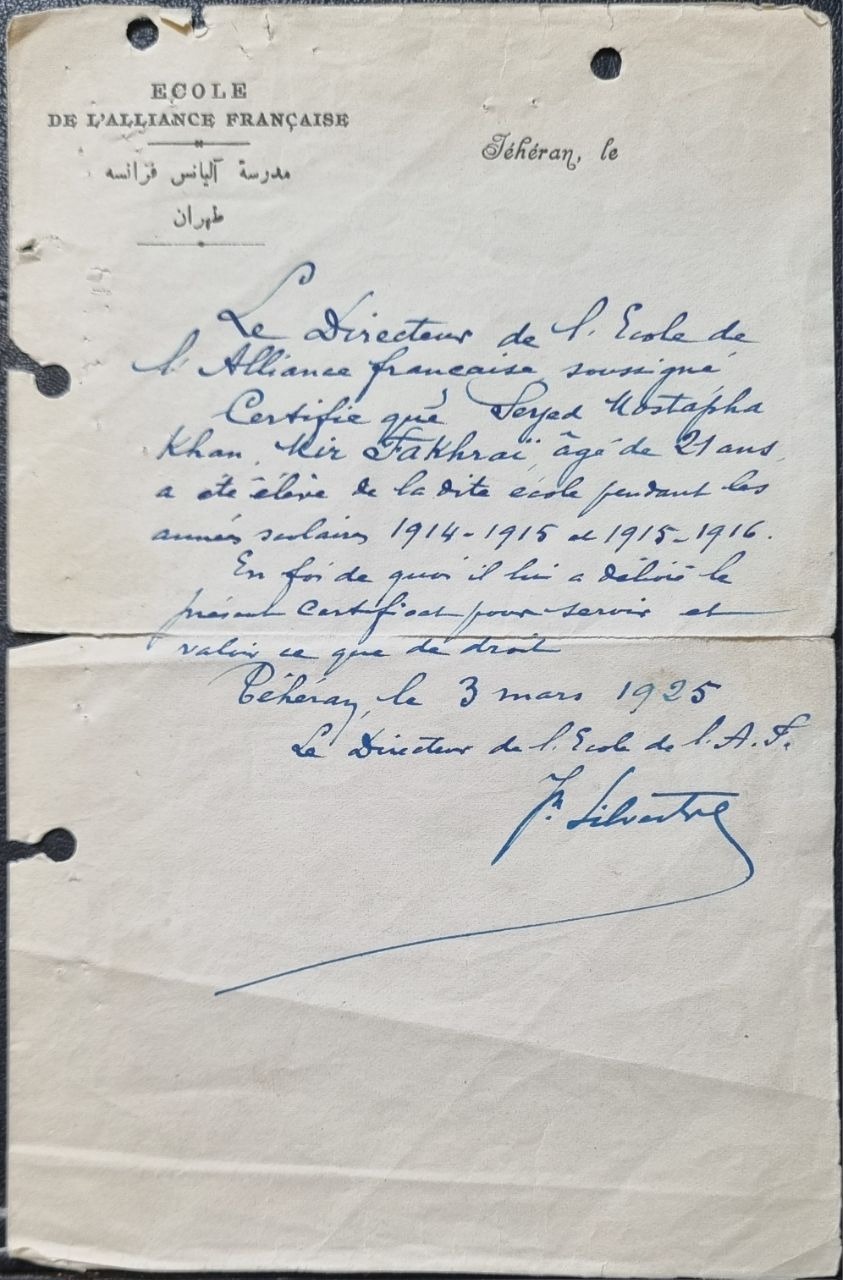 ECOLE
DE L'ALLIANCE FRANÇAISE
مدرسة آلیانس فرانسه
طهران
Téhéran, le
Le Directeur de l'Ecole de
l'Alliance française, soussigné,
Certifie que Seyed Mostapha
Khan, Mir Fakhraï, âgé de 21 ans,
a été élève de la dite école pendant les
années scolaires 1914-1915 et 1915-1916.
En foi de quoi il lui a délivré le
présent certificat pour servir et
valoir ce que de droit
Téhéran, le 3 mars 1925
Le Directeur de l'Ecole de l'A.F.
Silvestre